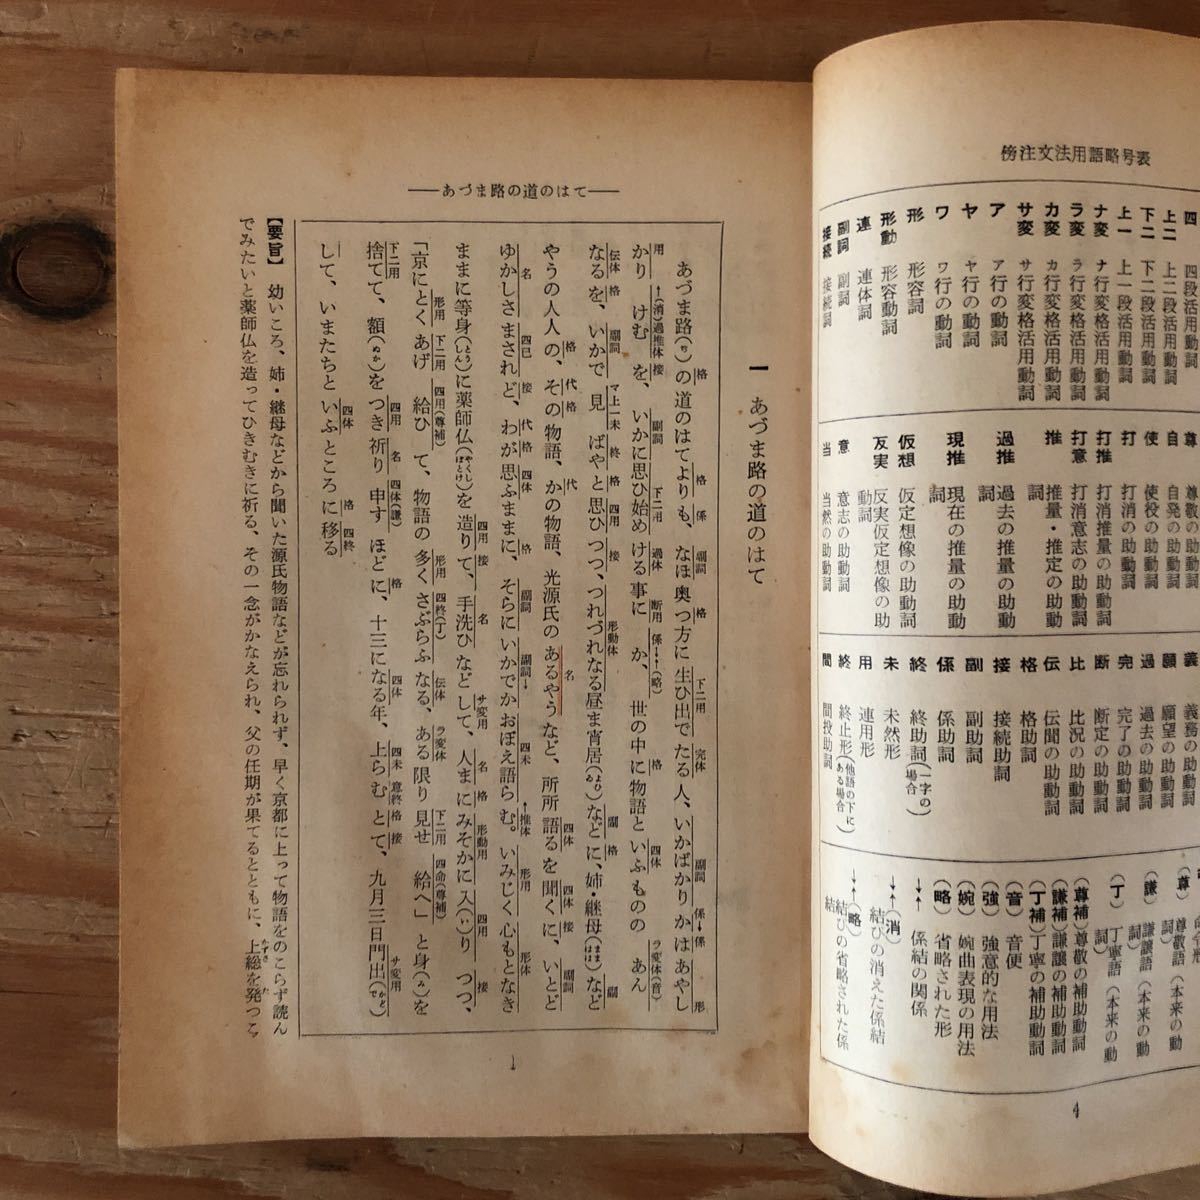 傍注文法用語略号表
四 四段活用動詞
上二 上二段活用動詞
下二 下二段活用動詞
上一 上一段活用動詞
ナ変 ナ行変格活用動詞
ラ変 ラ行変格活用動詞
カ変 カ行変格活用動詞
サ変 サ行変格活用動詞
ア ア行の動詞
ヤ ヤ行の動詞
ワ ワ行の動詞
形 形容詞
形動 形容動詞
連 連体詞
副詞 副詞
接続 接続詞
尊 尊敬の助動詞
自 自発の助動詞
使 使役の助動詞
打 打消の助動詞
打推 打消推量の助動詞
打意 打消意志の助動詞
推 推量・推定の助動詞
過推 過去の推量の助動詞
現推 現在の推量の助動詞
仮想 仮定想像の助動詞
反実 反実仮定想像の助動詞
意 意志の助動詞
当 当然の助動詞
義 義務の助動詞
願 願望の助動詞
過 過去の助動詞
完 完了の助動詞
断 断定の助動詞
比 比況の助動詞
伝 伝聞の助動詞
格 格助詞
接 接続助詞
副 副助詞
係 係助詞
終 終助詞(一字の場合)
未 未然形
用 連用形
終 終止形(他語の下にある場合)
間 間投助詞
(尊) 尊敬語(本来の動詞)
(謙) 謙譲語(本来の動詞)
(丁) 丁寧語(本来の動詞)
(尊補) 尊敬の補助動詞
(謙補) 謙譲の補助動詞
(丁補) 丁寧の補助動詞
(音) 音便
(強) 強意的な用法
(婉) 婉曲表現の用法
(略) 省略された形
←→ 係結の関係
←→(消) 結びの消えた係結
←→(略) 結びの省略された係結
4
——あづま路の道のはて——
一 あづま路の道のはて
あづま路(ぢ)の道のはてよりも、なほ奥つ方に生ひ出でたる人、いかばかりかはあやし
かりけむを、いかに思ひ始めける事にか、世の中に物語といふもののあん
なるを、いかで見ばやと思ひつつ、つれづれなる昼ま宵居(よひゐ)などに、姉・継母(ままはは)など
やうの人人の、その物語、かの物語、光源氏のあるやうなど、所所語るを聞くに、いとど
ゆかしさまされど、わが思ふままに、そらにいかでかおぼえ語らむ。いみじく心もとなき
ままに等身(とうしん)に薬師仏(やくしぼとけ)を造りて、手洗ひなどして、人まにみそかに入(い)りつつ、
「京にとくあげ給ひて、物語の多くさぶらふなる、ある限り見せ給へ」と身(み)を
捨てて、額(ぬか)をつき祈り申すほどに、十三になる年、上らむとて、九月三日門出(かどで)
して、いまたちといふところに移る
【要旨】 幼いころ、姉・継母などから聞いた源氏物語などが忘れられず、早く京都に上って物語をのこらず読ん
でみたいと薬師仏を造ってひきむきに祈る、その一念がかなえられ、父の任期が果てるとともに、上総を発つこ
1